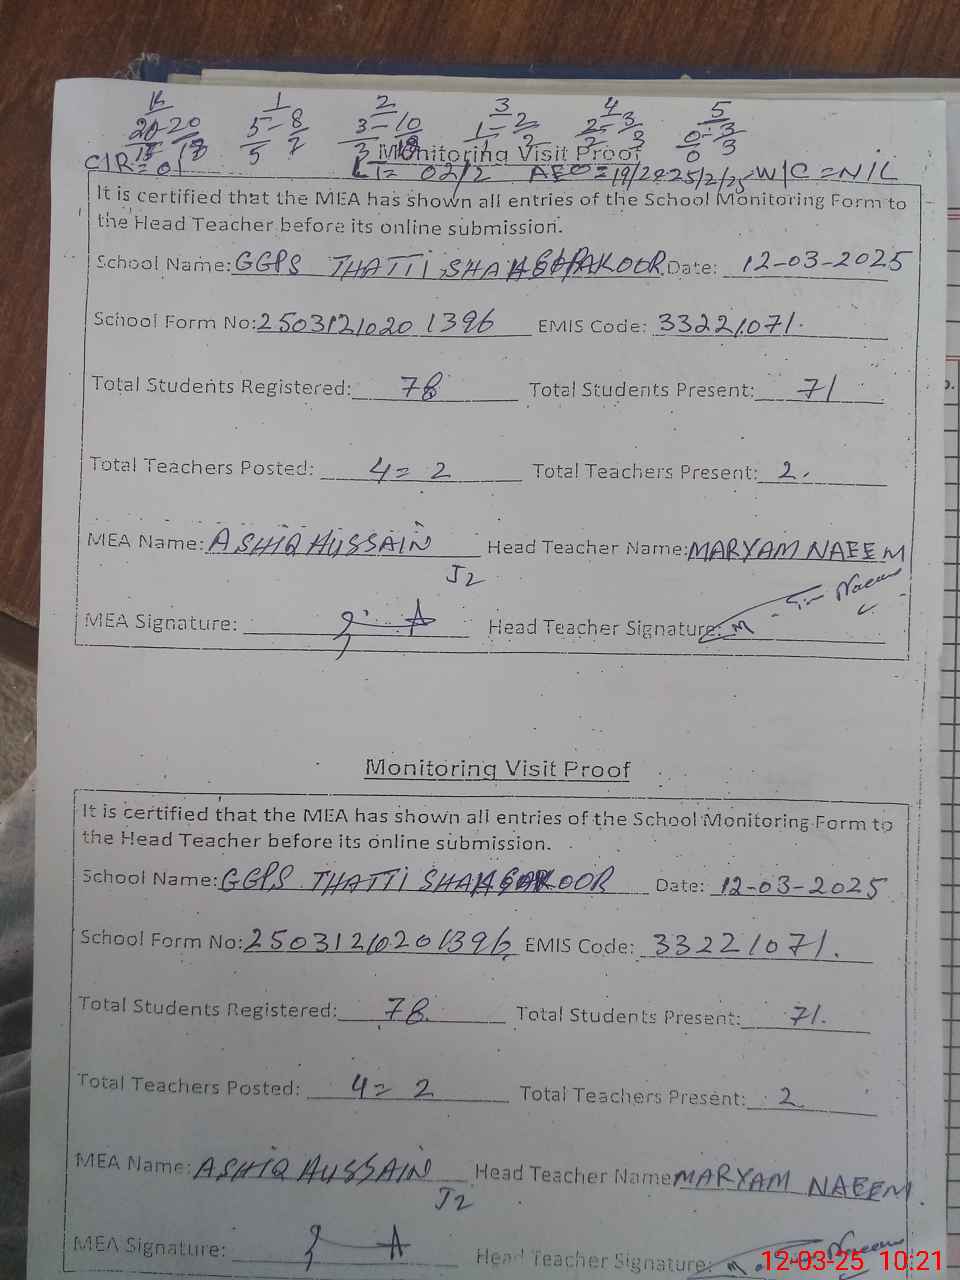 K 1 2 3 4 5
20-20 5-8 3-10 1-2 2-3 0-3
5 7 3 1 2 2 3 0 3
Monitoring Visit Proof
C/R = 01 LT = 02/2 AEO = 19/2=25/2/25 W/C = NIL
It is certified that the MEA has shown all entries of the School Monitoring Form to
the Head Teacher before its online submission.
School Name: GGPS THATTI SHAH Date: 12-03-2025
School Form No: 25031210201396 EMIS Code: 33221071.
Total Students Registered: 78 Total Students Present: 71
Total Teachers Posted: 4= 2 Total Teachers Present: 2.
MEA Name: ASHIQ HUSSAIN Head Teacher Name: MARYAM NAEEM
J2
MEA Signature: Head Teacher Signature: M Naeem
Monitoring Visit Proof
It is certified that the MEA has shown all entries of the School Monitoring Form to
the Head Teacher before its online submission.
School Name: GGPS THATTI SHAH Date: 12-03-2025
School Form No: 25031210201396 EMIS Code: 33221071.
Total Students Registered: 78 Total Students Present: 71.
Total Teachers Posted: 4= 2 Total Teachers Present: 2
MEA Name: ASHIQ HUSSAIN Head Teacher Name MARYAM NAEEM
J2
MEA Signature: Head Teacher Signature: M. Naeem
12-03-25 10:21